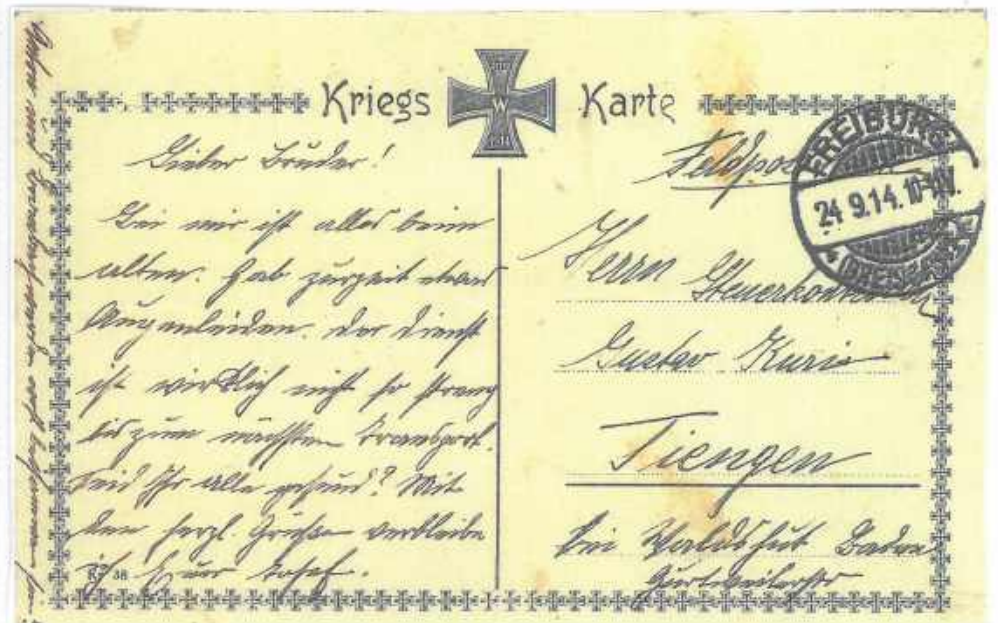 Kriegs Karte
W
Lieber Bruder!
Bei mir ist alles beim
alten. Hab zurzeit etwas
Augenleiden. Der Dienst
ist wirklich nicht so streng
bis zum nächsten Transport.
Seid Ihr alle gesund? Mit
den herzl. Grüßen verbleibe
ich Euer Josef.
Feldpost
FREIBURG
24 9.14. 10-11V.
(BREISGAU)
Herrn
Gustav Kuri
Tiengen
bei Waldshut Baden
Gurtweilerstr